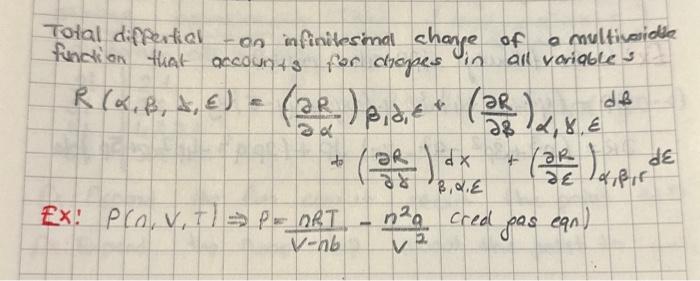 Total differtial - an infinitesimal change of a multivariable
function that accounts for chages in all variables
R(α, β, γ, ε) = (∂R/∂α)β,γ,ε + (∂R/∂β)α,γ,ε dβ
+ (∂R/∂γ)β,α,ε dγ + (∂R/∂ε)α,β,γ dε
Ex: P(n, V, T) ⇒ P = nRT/V-nb - n²a/V² (real gas eqn)